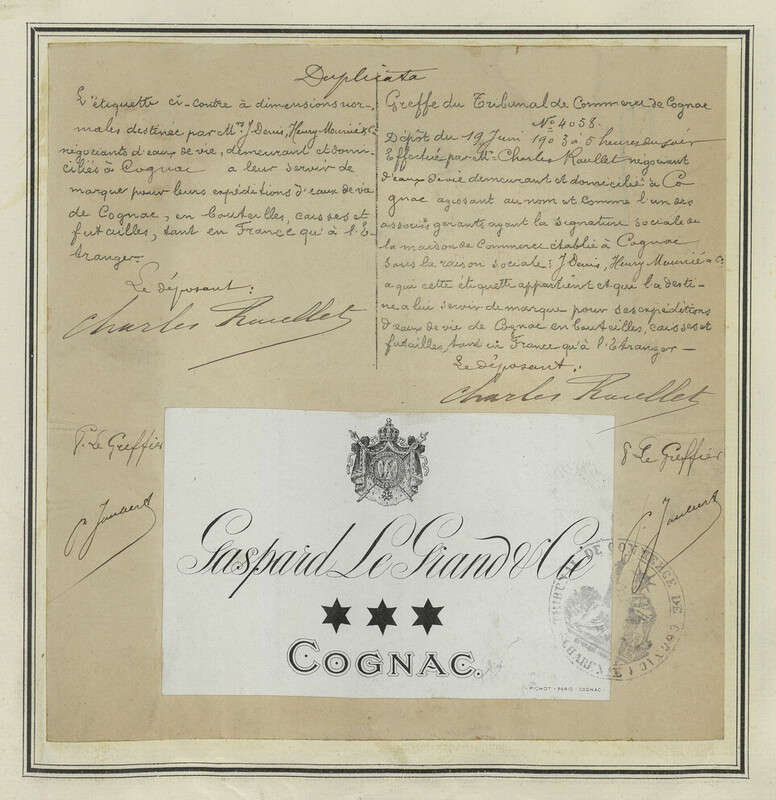 Duplicata
L'étiquette ci-contre à dimensions nor-
males destinée par Mrs J. Denis, Henry Mounié & Co
négociants d'eaux de vie, demeurant et domi-
ciliés à Cognac a leur servir de
marque pour leurs expéditions d'eaux de vie
de Cognac, en bouteilles, caisses et
futailles, tant en France qu'à l'E-
tranger.
Le déposant:
Charles Roullet
Greffe du Tribunal de Commerce de Cognac
No 4058.
Dépôt du 19 Juin 1903 à 5 heures du soir
Effectué par Mr. Charles Roullet négociant
d'eaux de vie demeurant et domicilié à Co
gnac agissant au nom et comme l'un des
associés gérants ayant la signature sociale de
la maison de Commerce établie à Cognac
sous la raison sociale: J. Denis, Henry Mounié & Co.
a qui cette étiquette appartient et qui l'a desti-
né a lui servir de marque pour ses expéditions
d'eaux de vie de Cognac en bouteilles, caisses et
futailles, tant en France qu'à l'Etranger —
Le déposant:
Charles Roullet
P. Le Greffier
P Le Greffier
Gaspard Le Grand & Cie
COGNAC.
PICHOT - PARIS - COGNAC
TRIBUNAL DE COMMERCE DE COGNAC
(CHARENTE)